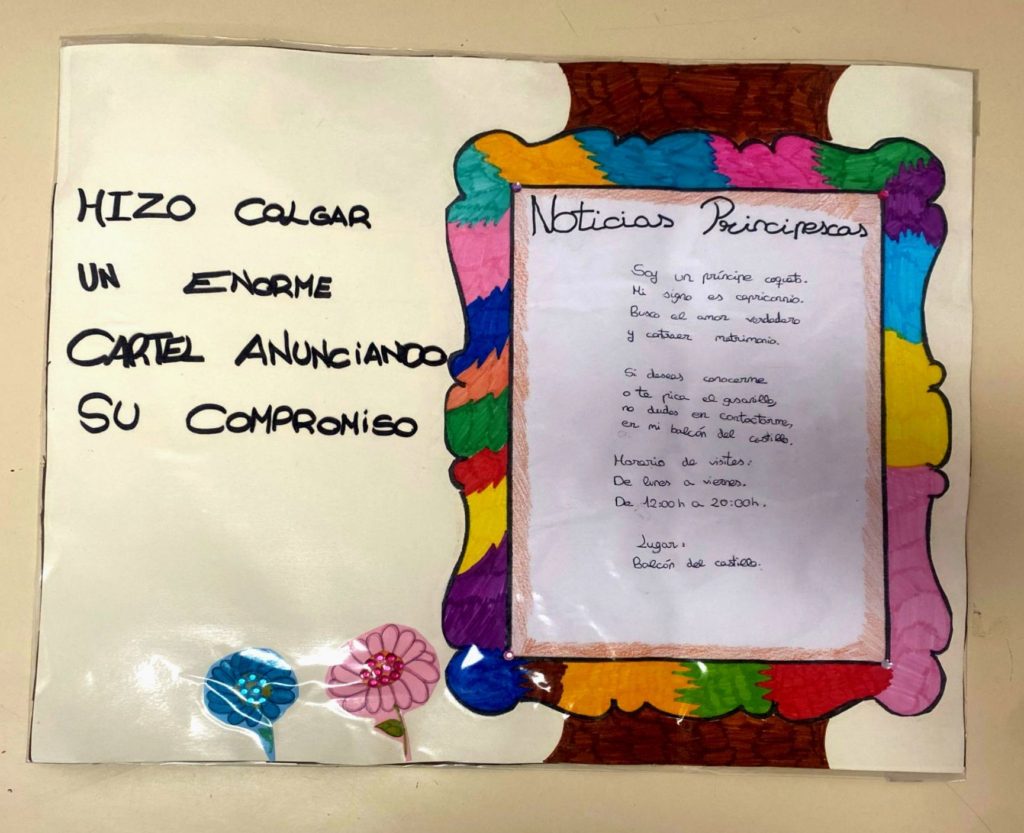 HIZO COLGAR
UN ENORME
CARTEL ANUNCIANDO
SU COMPROMISO
Noticias Principescas
Soy un príncipe coqueto.
Mi signo es capricornio.
Busco el amor verdadero
y contraer matrimonio.
Si deseas conocerme
o te pica el gusanillo,
no dudes en contactarme,
en mi balcón del castillo.
Horario de visitas:
De lunes a viernes.
De 12:00h a 20:00h.
Lugar:
Balcón del castillo.